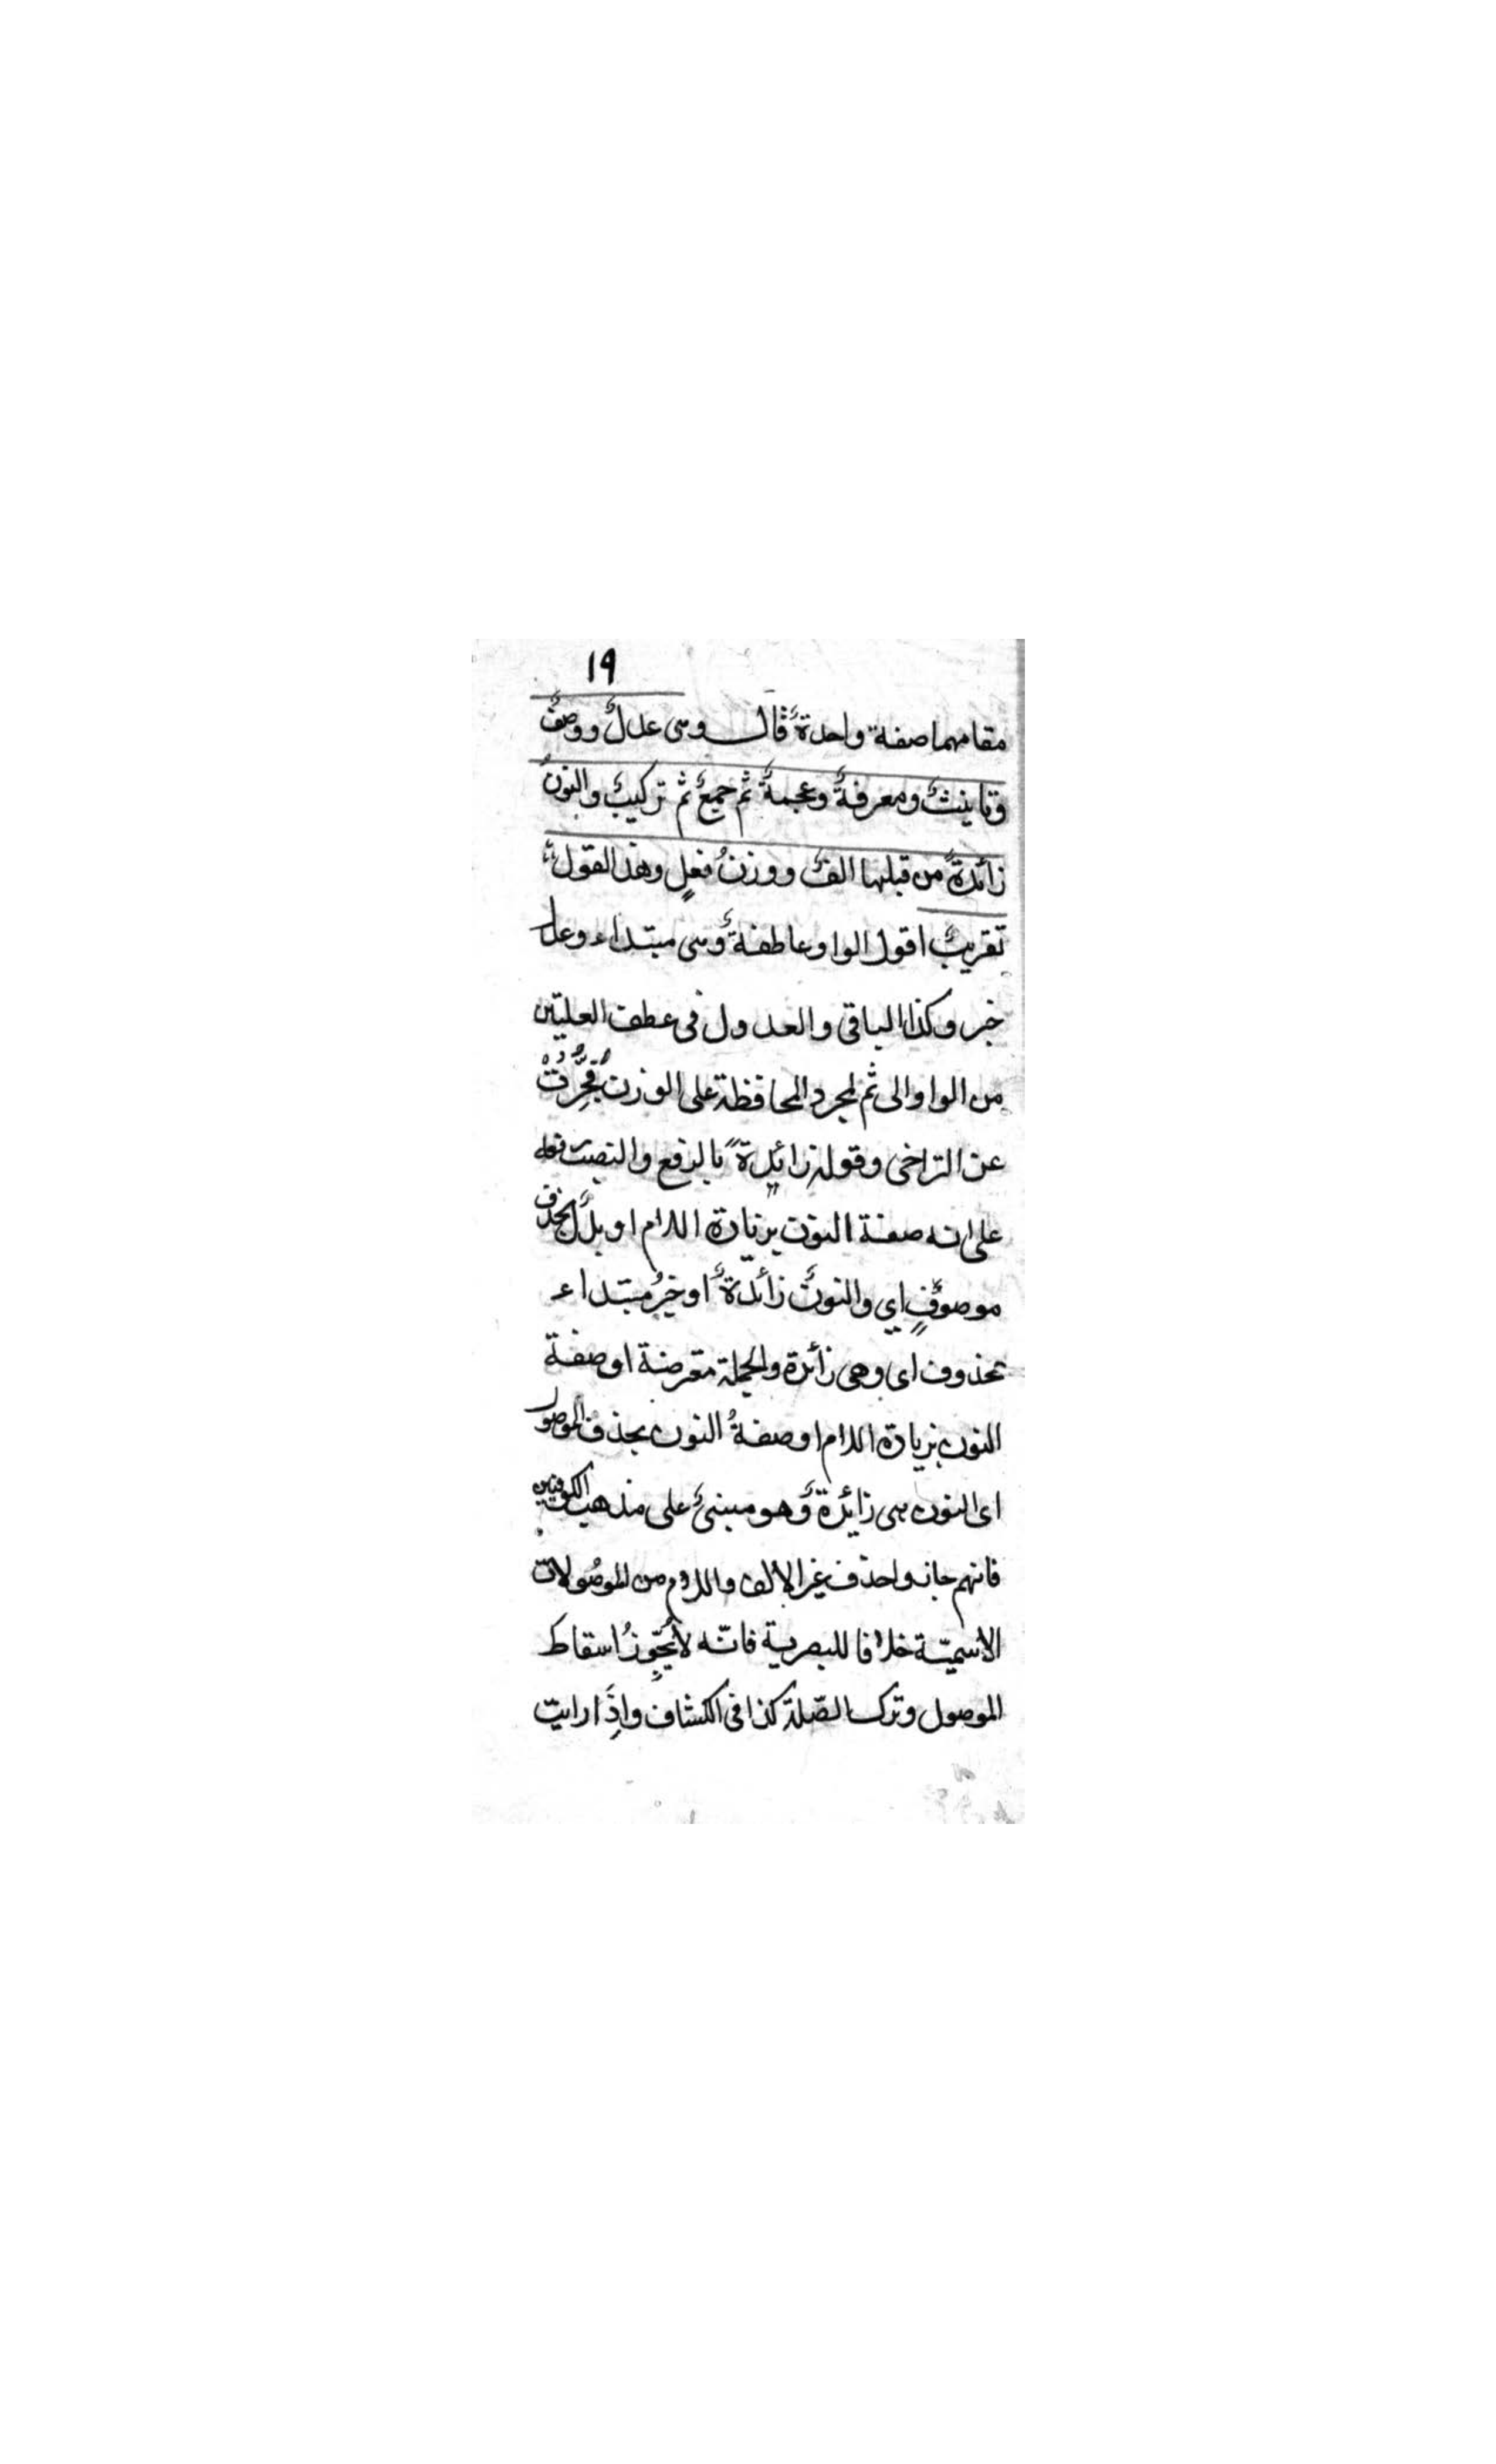 ١٩
مقامهما صفة واحدةٌ قال وهى عدلٌ ووصفٌ
وتانيثٌ ومعرفةٌ وعجمةٌ ثم جمعٌ ثم تركيبٌ والنونُ
زائدةً من قبلها الفٌ ووزنُ فعلٍ وهذا القول
تقريبٌ اقول الواو عاطفةٌ وهى مبتداء وعدل
خبر وكذا الباقى والعدول فى عطف العليتين
من الواو الى ثم لمجرد المحافظة على الوزن فجُرِّدَتْ
عن التراخى وقوله زائدة بالرفع والنصب فعلى
على انه صفة النون بزيادة اللام او بدل بحذف
موصوفٍ اي والنونُ زائدةٌ او خبرُ مبتداء
محذوف اى وهى زائدة والجملة معترضة او صفة
النون بزيادة اللام او صفةُ النون بحذف الموصول
اى النون هى زائدةٌ وهو مبنىٌ على مذهب الكوفيين
فانهم جازوا حذف غير الالف واللام من الموصولات
الاسميّة خلافا للبصرية فانّه لا يُجوِّزُ اسقاط
الموصول وترك الصّلة كذا فى الكشاف واِذَا رايت